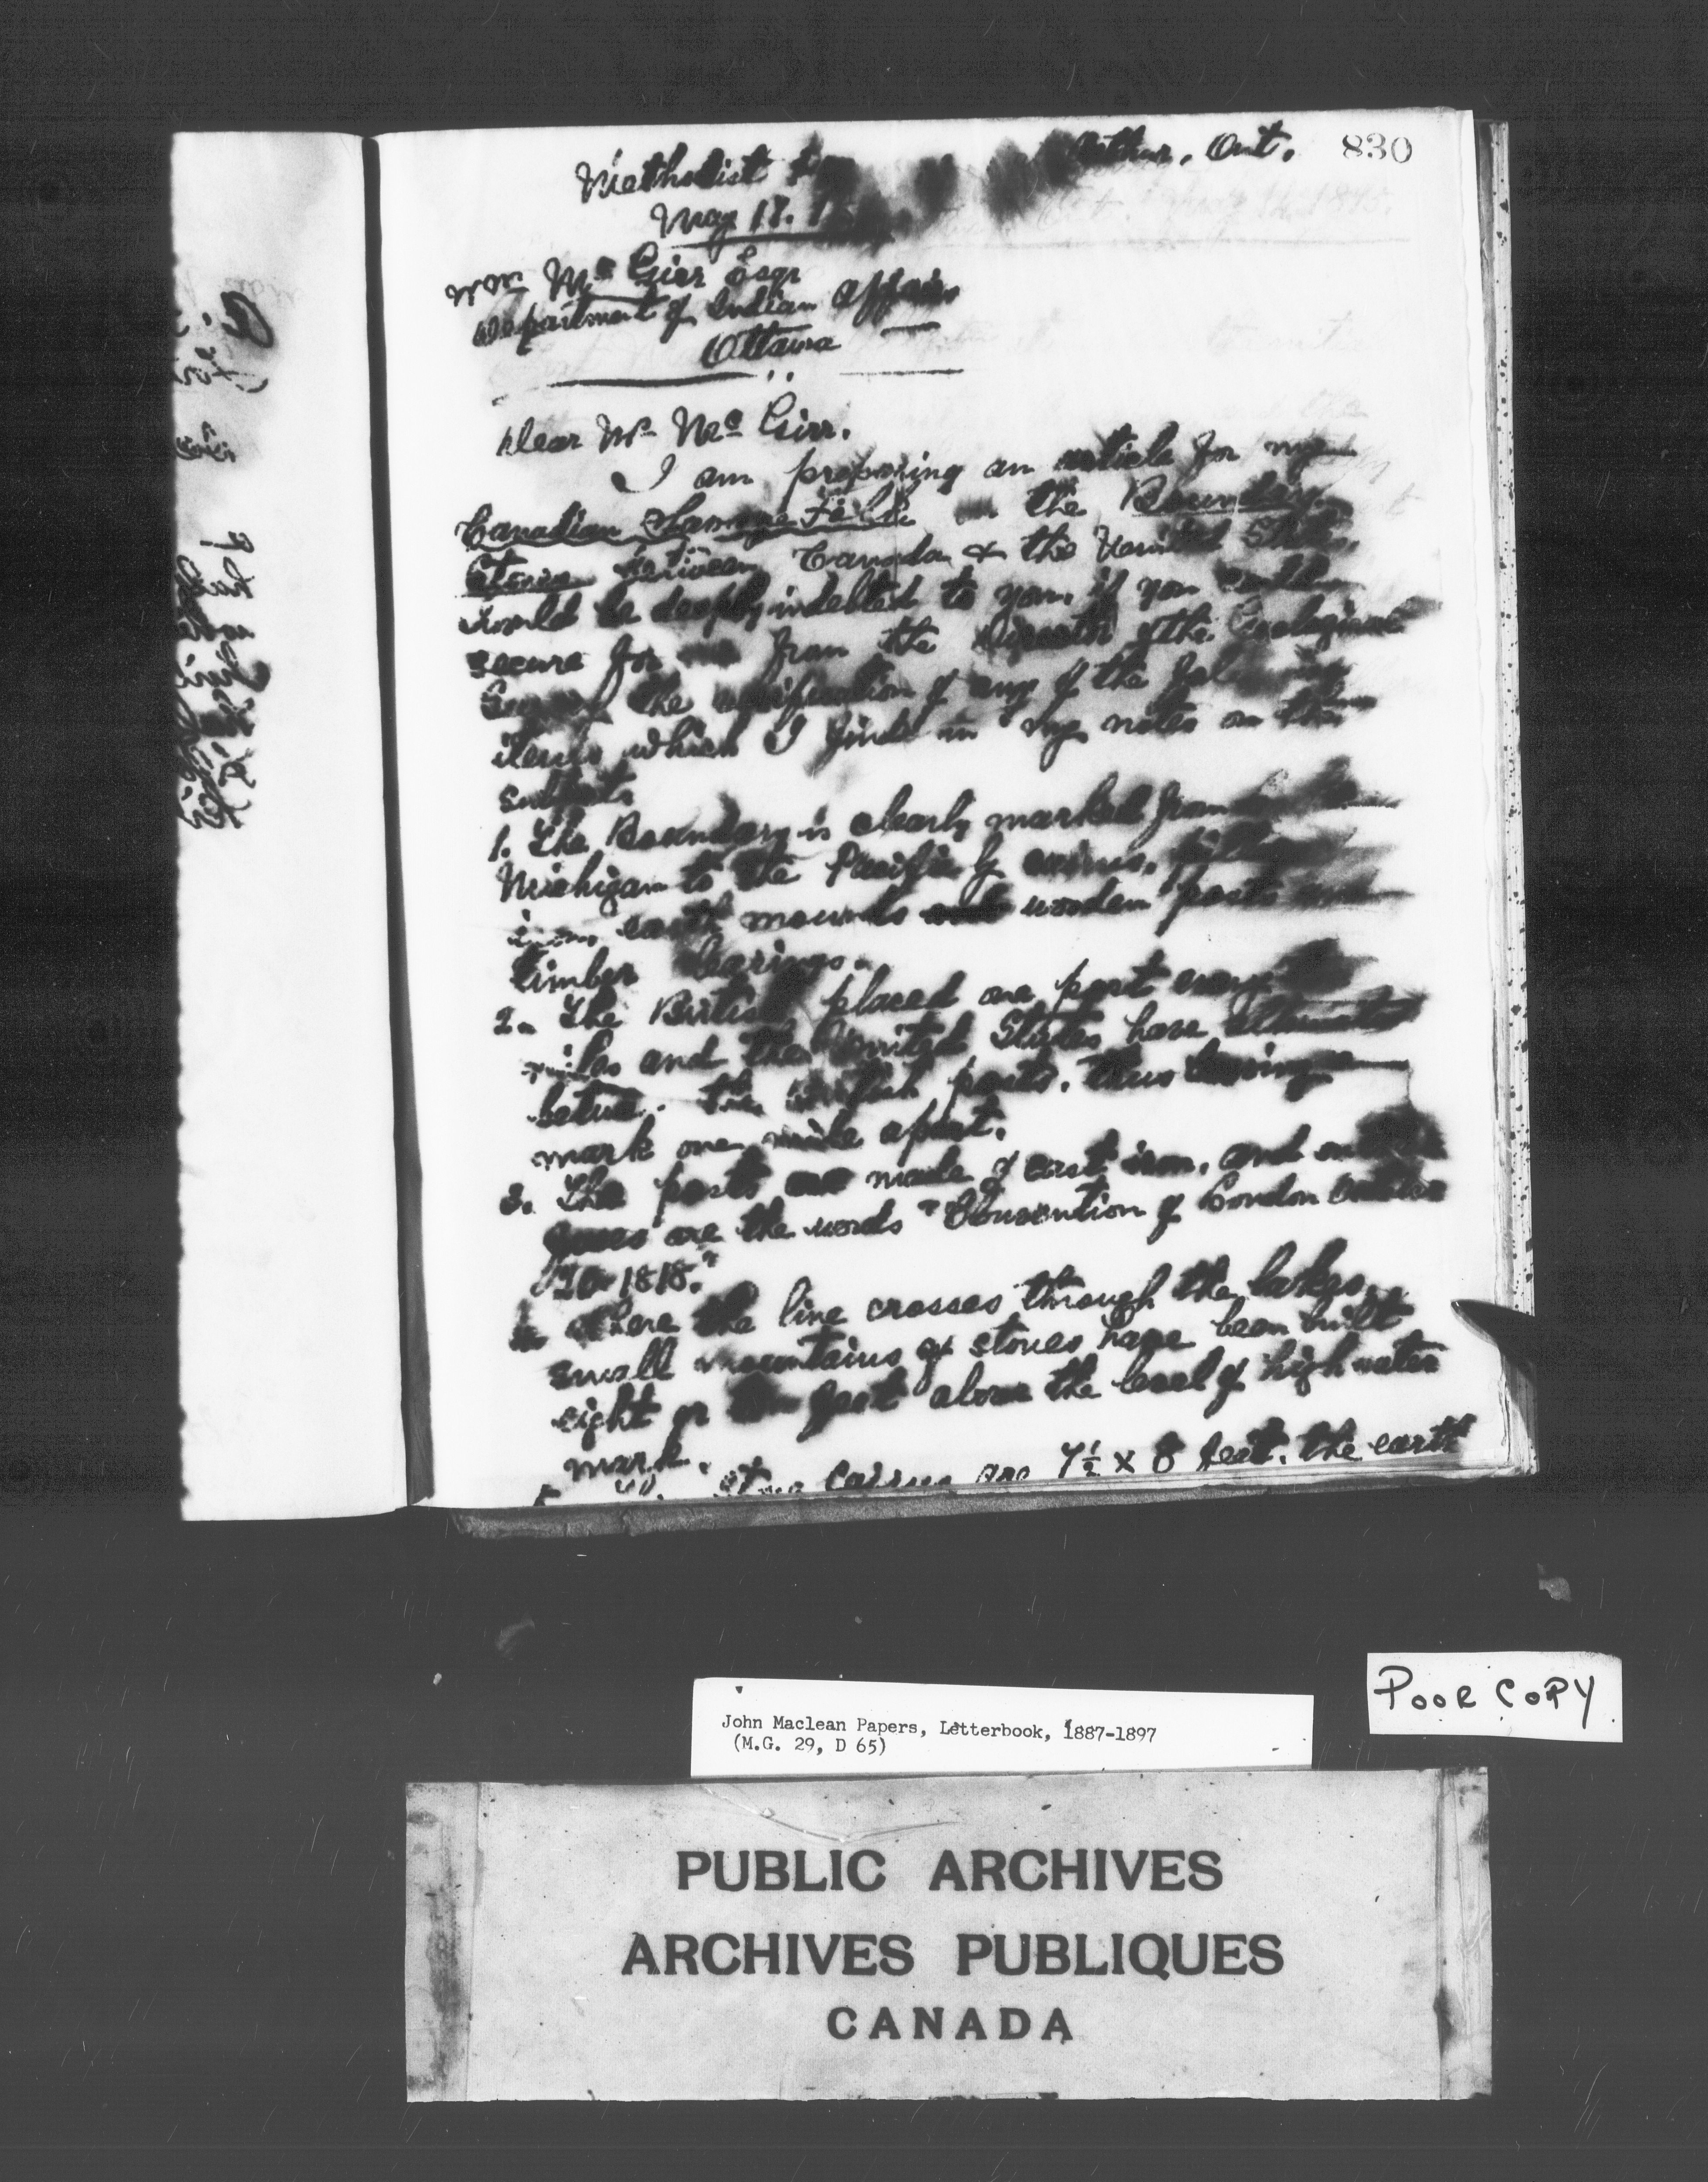 830
Methodist Arthur, Ont.
May 18. 1
Wm McGirr Esqr
Department of Indian Affairs
Ottawa
Dear Mr McGirr.
I am preparing an article for my
Canadian Savage Folk on the Boundary
between Canada & the United States,
would be deeply indebted to you, if you could
secure for me from the Director of the Geological
Survey the verification of any of the following
items which I find in my notes on this
subject.
1. The Boundary is clearly marked from
Michigan to the Pacific by cairns,
iron, earth mounds wooden posts and
timber
2. The British placed one post every two
miles and the United States have alternated
between the British posts, thus leaving a
mark one mile apart.
3. The posts are made of cast iron, and on
faces are the words "Convention of London October
20 1818."
Where the line crosses through the lakes,
small mountains of stones have been built
eight or ten feet above the level of high water
mark.
5. The Stone Cairns are 7½ x 8 feet. the earth
POOR COPY
John Maclean Papers, Letterbook, 1887-1897
(M.G. 29, D 65)
PUBLIC ARCHIVES
ARCHIVES PUBLIQUES
CANADA